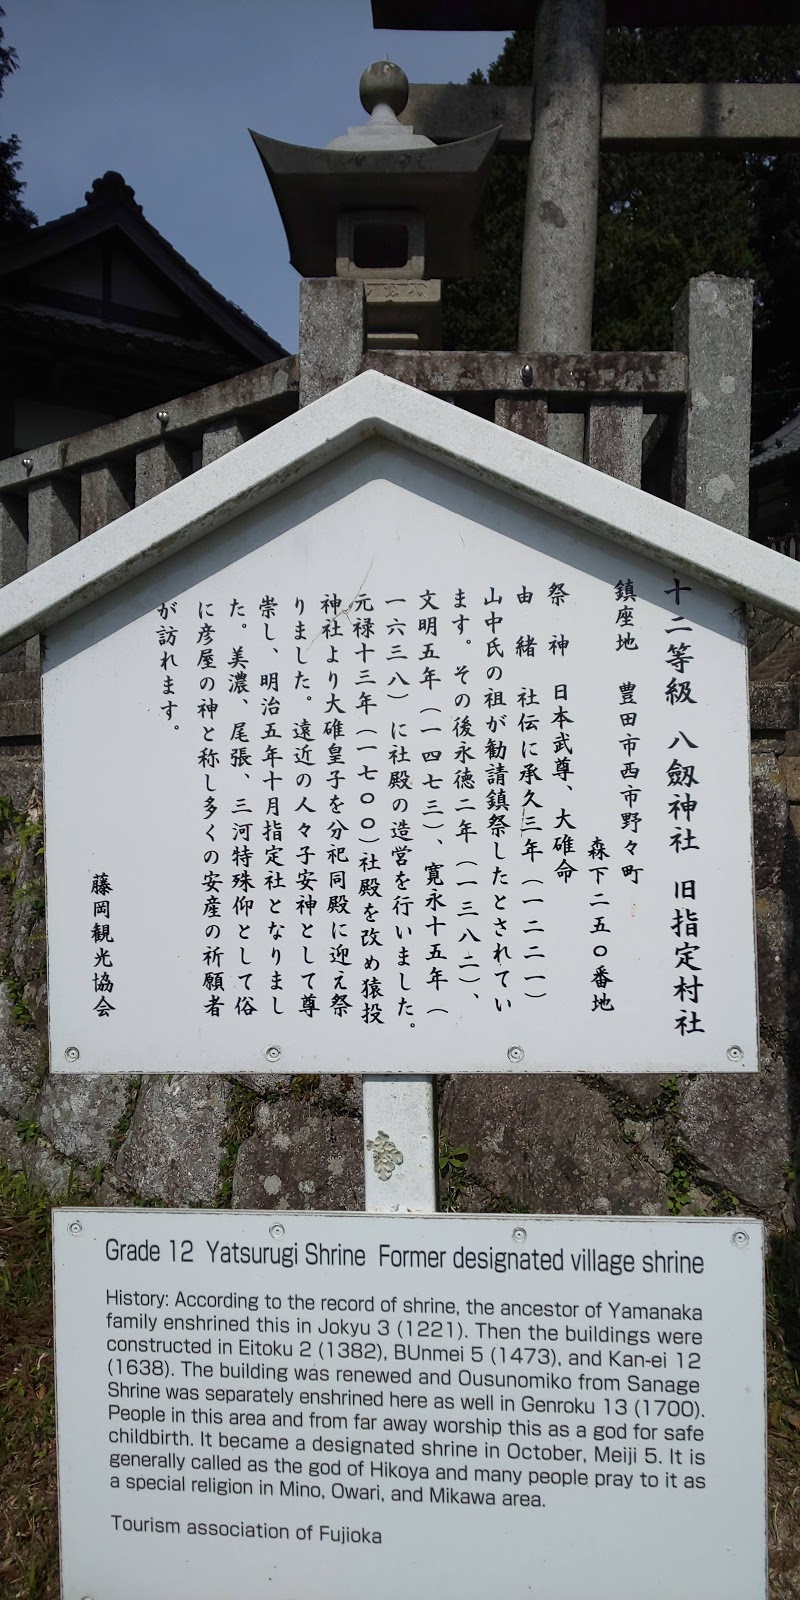 十二等級　八劔神社　旧指定村社
鎮座地　豊田市西市野々町
森下二五〇番地
祭　神　日本武尊、大碓命
由　緒　社伝に承久三年（一二二一）
山中氏の祖が勧請鎮祭したとされてい
ます。その後永徳二年（一三八二）、
文明五年（一四七三）、寛永十五年（
一六三八）に社殿の造営を行いました。
元禄十三年（一七〇〇）社殿を改め猿投
神社より大碓皇子を分祀同殿に迎え祭
りました。遠近の人々子安神として尊
崇し、明治五年十月指定社となりまし
た。美濃、尾張、三河特殊仰として俗
に彦屋の神と称し多くの安産の祈願者
が訪れます。
藤岡観光協会
Grade 12 Yatsurugi Shrine Former designated village shrine
History: According to the record of shrine, the ancestor of Yamanaka
family enshrined this in Jokyu 3 (1221). Then the buildings were
constructed in Eitoku 2 (1382), BUnmei 5 (1473), and Kan-ei 12
(1638). The building was renewed and Ousunomiko from Sanage
Shrine was separately enshrined here as well in Genroku 13 (1700).
People in this area and from far away worship this as a god for safe
childbirth. It became a designated shrine in October, Meiji 5. It is
generally called as the god of Hikoya and many people pray to it as
a special religion in Mino, Owari, and Mikawa area.
Tourism association of Fujioka